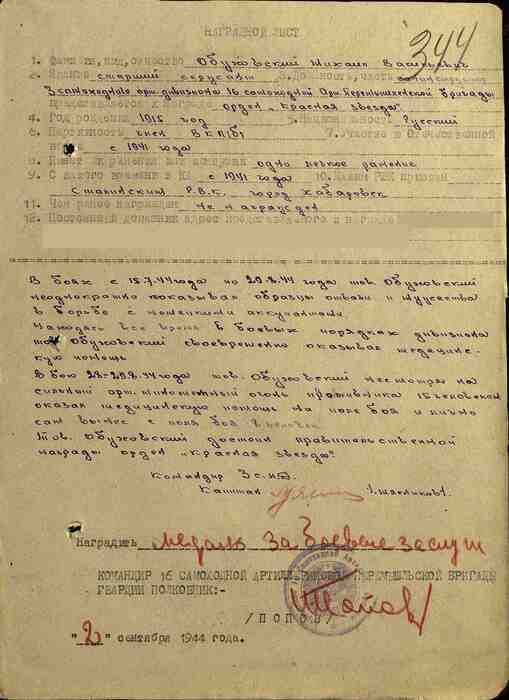 344
НАГРАДНОЙ ЛИСТ
1. Фамилия, имя, отчество Обуховский Михаил Васильевич
2. Звание старший сержант 3. Должность, часть санинструктор
3 самоходного арт. дивизиона 16 самоходной Арт. Перемышльской бригады
представляется к награде орден "Красная звезда"
4. Год рождения 1915 год 5. Национальность Русский
6. Партийность член ВКП/б/ 7. Участие в Отечественной
войне с 1941 года
8. Имеет ли ранения или контузии одно легкое ранение
9. С какого времени в КА с 1941 года 10. Каким РВК призван
Сталинским Р.В.К. город Хабаровск
11. Чем ранее награжден не награжден
12. Постоянный домашний адрес представляемого к награде
В боях с 15.7.44 года по 29.8.44 года тов. Обуховский
неоднократно показывал образцы отваги и мужества
в борьбе с немецкими оккупантами.
Находясь все время в боевых порядках дивизиона
тов Обуховский своевременно оказывал медицинс-
кую помощь
В бою 28-29.8.44 года тов. Обуховский несмотря на
сильный арт. минометный огонь противника 15 человекам
оказал медицинскую помощь на поле боя и лично
сам вынес с поля боя 8 человек
Тов. Обуховский достоин правительственной
награды орден "Красная звезда"
Командир 3 с.
Капитан
Наградить медаль За боевые заслуги
КОМАНДИР 16 САМОХОДНОЙ АРТИЛЛЕРИЙСКОЙ ПЕРЕМЫШЛЬСКОЙ БРИГАДЫ
ГВАРДИИ ПОЛКОВНИК:-
/ПОПОВ/
"2" сентября 1944 года.